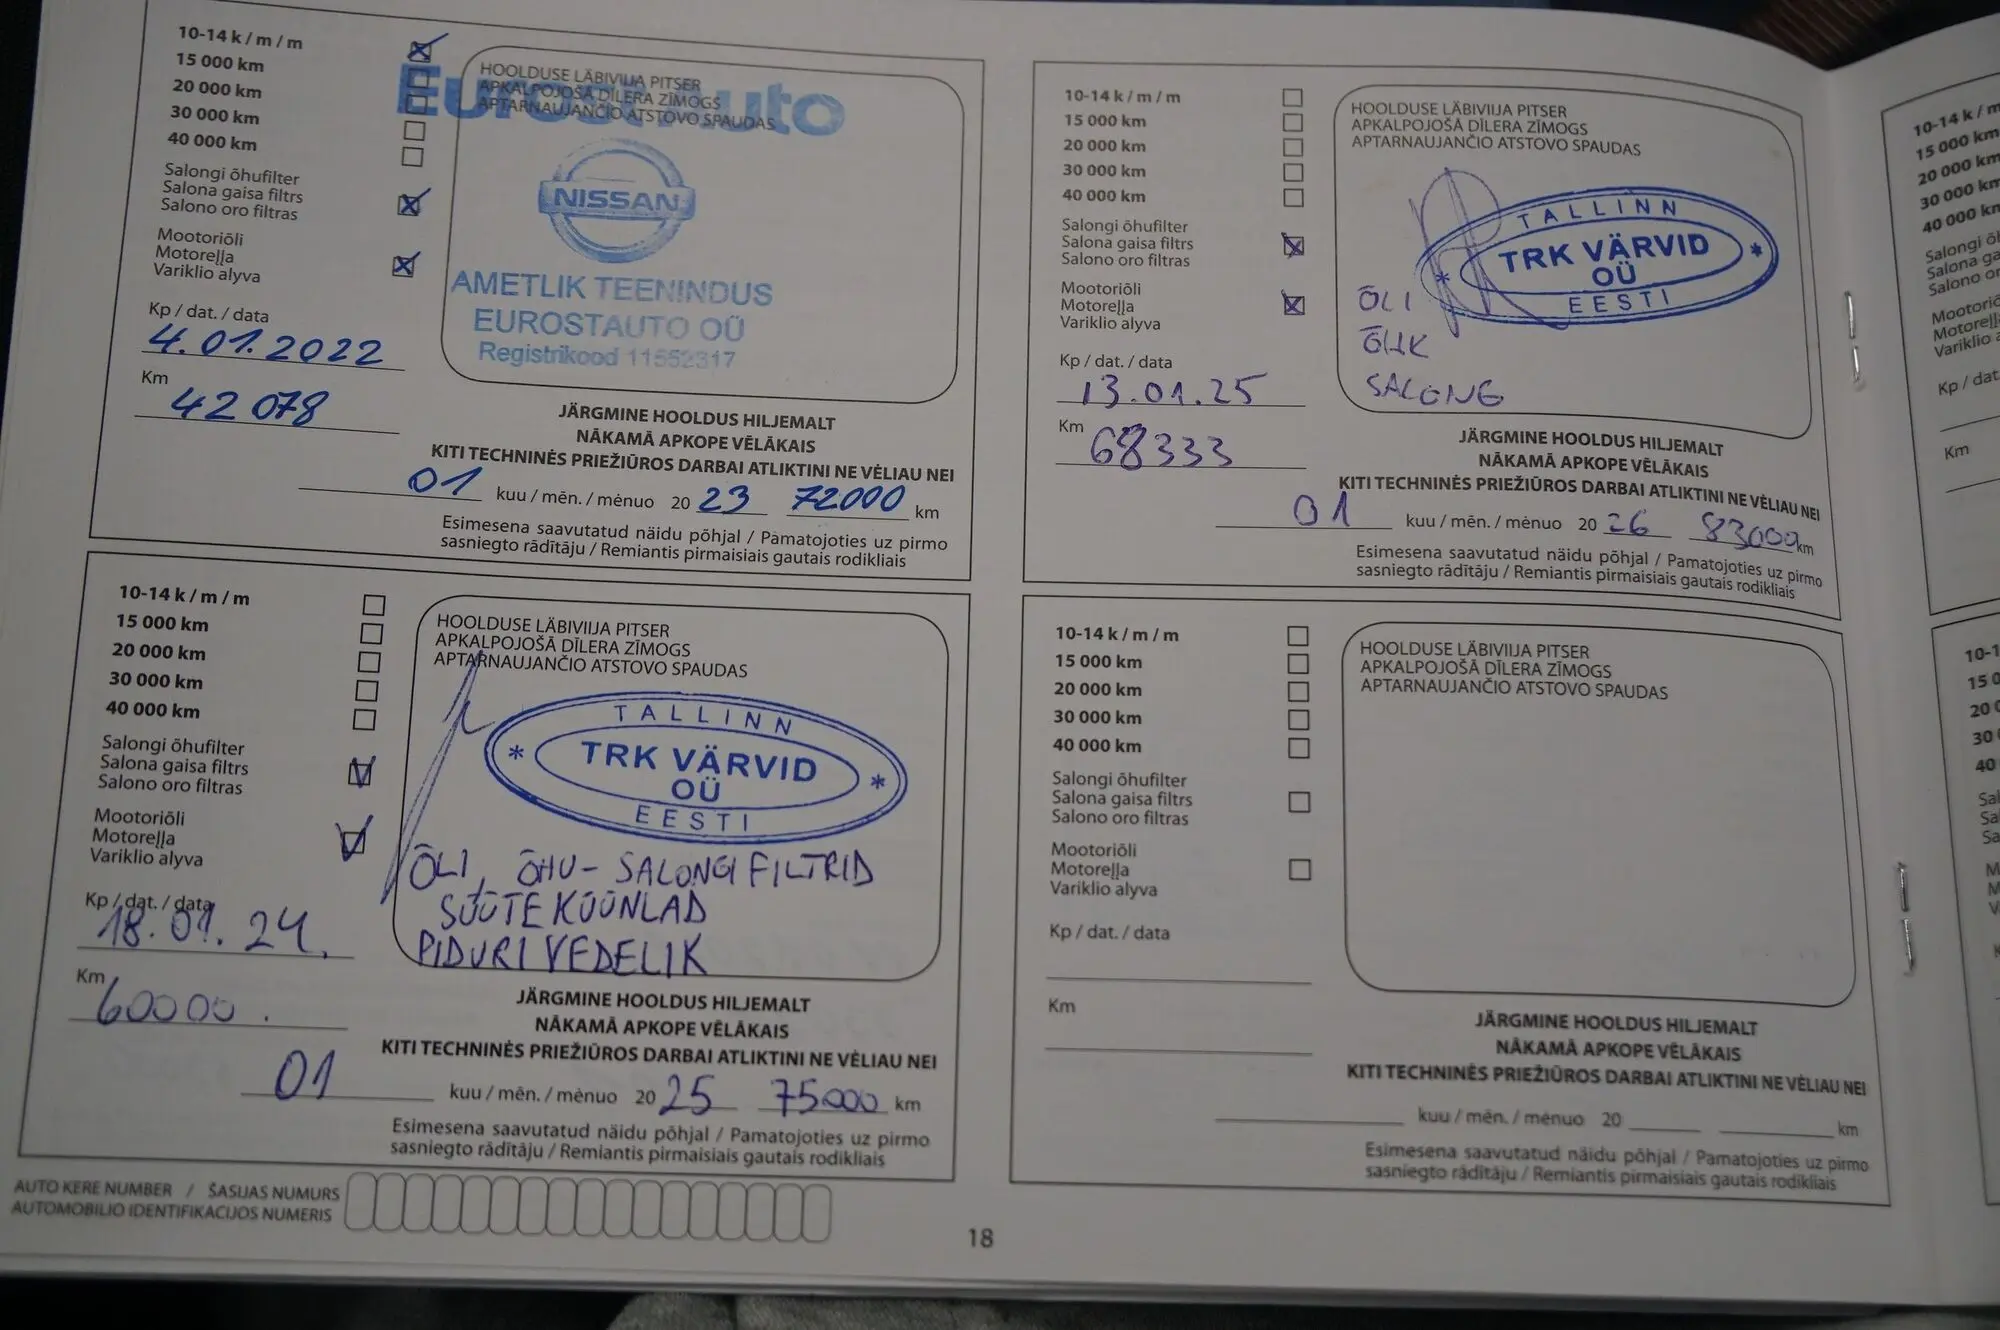 10-14 k / m / m
15 000 km
20 000 km
30 000 km
40 000 km
Salongi õhufilter
Salona gaisa filtrs
Salono oro filtras
Mootoriõli
Motoreļļa
Variklio alyva
Kp / dat. / data
4.01.2022
Km
42 078
HOOLDUSE LÄBIVIIJA PITSER
APKALPOJOŠĀ DĪLERA ZĪMOGS
APTARNAUJANČIO ATSTOVO SPAUDAS
Eurostauto
NISSAN
AMETLIK TEENINDUS
EUROSTAUTO OÜ
Registrikood 11552317
JÄRGMINE HOOLDUS HILJEMALT
NĀKAMĀ APKOPE VĒLĀKAIS
KITI TECHNINĖS PRIEŽIŪROS DARBAI ATLIKTINI NE VĖLIAU NEI
01 kuu / mēn. / mėnuo 20 23 72000 km
Esimesena saavutatud näidu põhjal / Pamatojoties uz pirmo
sasniegto rādītāju / Remiantis pirmaisiais gautais rodikliais
10-14 k / m / m
15 000 km
20 000 km
30 000 km
40 000 km
Salongi õhufilter
Salona gaisa filtrs
Salono oro filtras
Mootoriõli
Motoreļļa
Variklio alyva
Kp / dat. / data
18.01.24.
Km
60000.
HOOLDUSE LÄBIVIIJA PITSER
APKALPOJOŠĀ DĪLERA ZĪMOGS
APTARNAUJANČIO ATSTOVO SPAUDAS
TALLINN
* TRK VÄRVID *
OÜ
EESTI
ÕLI, ÕHU- SALONGI FILTRID
SÜÜTE KÜÜNLAD
PIDURI VEDELIK
JÄRGMINE HOOLDUS HILJEMALT
NĀKAMĀ APKOPE VĒLĀKAIS
KITI TECHNINĖS PRIEŽIŪROS DARBAI ATLIKTINI NE VĖLIAU NEI
01 kuu / mēn. / mėnuo 20 25 75000 km
Esimesena saavutatud näidu põhjal / Pamatojoties uz pirmo
sasniegto rādītāju / Remiantis pirmaisiais gautais rodikliais
AUTO KERE NUMBER / ŠASIJAS NUMURS
AUTOMOBILIO IDENTIFIKACIJOS NUMERIS
10-14 k / m / m
15 000 km
20 000 km
30 000 km
40 000 km
Salongi õhufilter
Salona gaisa filtrs
Salono oro filtras
Mootoriõli
Motoreļļa
Variklio alyva
Kp / dat. / data
13.01.25
Km
68333
HOOLDUSE LÄBIVIIJA PITSER
APKALPOJOŠĀ DĪLERA ZĪMOGS
APTARNAUJANČIO ATSTOVO SPAUDAS
TALLINN
* TRK VÄRVID *
OÜ
EESTI
ÕLI
SALONG
JÄRGMINE HOOLDUS HILJEMALT
NĀKAMĀ APKOPE VĒLĀKAIS
KITI TECHNINĖS PRIEŽIŪROS DARBAI ATLIKTINI NE VĖLIAU NEI
01 kuu / mēn. / mėnuo 20 26 83000 km
Esimesena saavutatud näidu põhjal / Pamatojoties uz pirmo
sasniegto rādītāju / Remiantis pirmaisiais gautais rodikliais
10-14 k / m / m
15 000 km
20 000 km
30 000 km
40 000 km
Salongi õhufilter
Salona gaisa filtrs
Salono oro filtras
Mootoriõli
Motoreļļa
Variklio alyva
Kp / dat. / data
Km
HOOLDUSE LÄBIVIIJA PITSER
APKALPOJOŠĀ DĪLERA ZĪMOGS
APTARNAUJANČIO ATSTOVO SPAUDAS
JÄRGMINE HOOLDUS HILJEMALT
NĀKAMĀ APKOPE VĒLĀKAIS
KITI TECHNINĖS PRIEŽIŪROS DARBAI ATLIKTINI NE VĖLIAU NEI
kuu / mēn. / mėnuo 20 km
Esimesena saavutatud näidu põhjal / Pamatojoties uz pirmo
sasniegto rādītāju / Remiantis pirmaisiais gautais rodikliais
18
10-14 k / m
15 000 km
20 000 km
30 000 km
40 000 km
Km